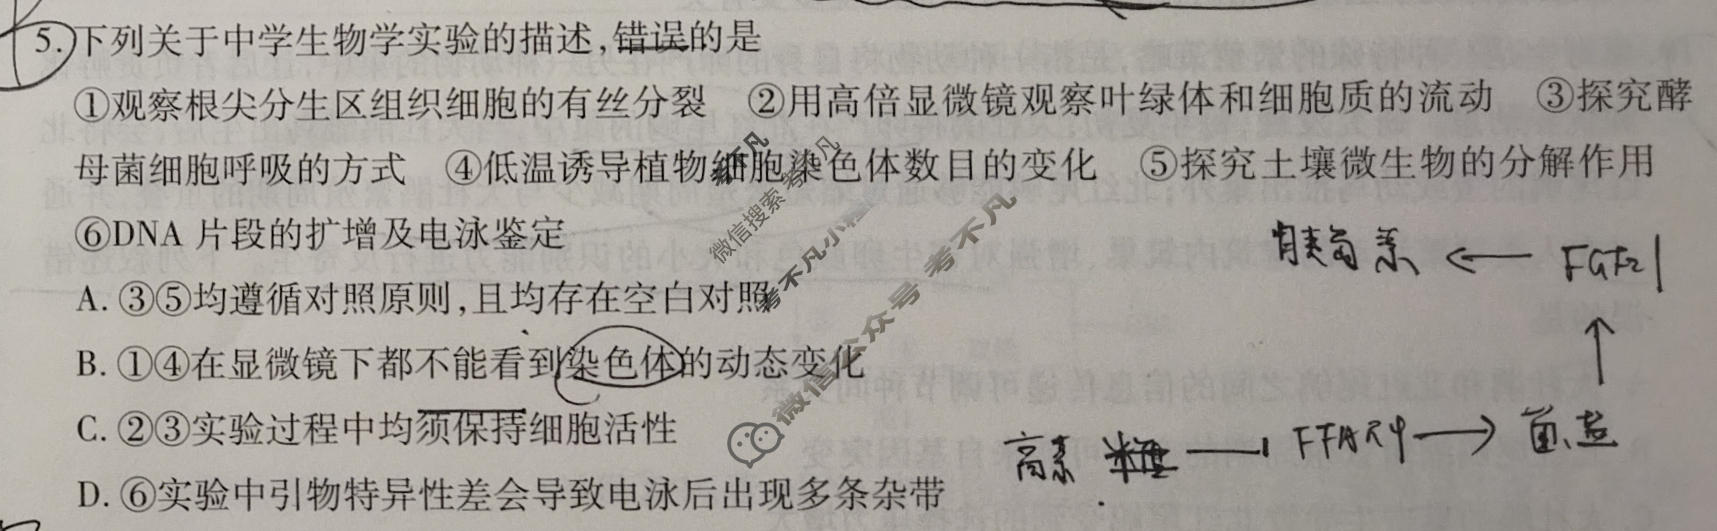 5.下列关于中学生物学实验的描述,错误的是
①观察根尖分生区组织细胞的有丝分裂 ②用高倍显微镜观察叶绿体和细胞质的流动 ③探究酵
母菌细胞呼吸的方式 ④低温诱导植物细胞染色体数目的变化 ⑤探究土壤微生物的分解作用
⑥DNA 片段的扩增及电泳鉴定
A. ③⑤均遵循对照原则,且均存在空白对照
B. ①④在显微镜下都不能看到染色体的动态变化
C. ②③实验过程中均须保持细胞活性
D. ⑥实验中引物特异性差会导致电泳后出现多条杂带
胰岛素 ← FGF21
↑
高 糖 → FFAR4 →
微信搜索考不凡小
微信公众号 考不凡